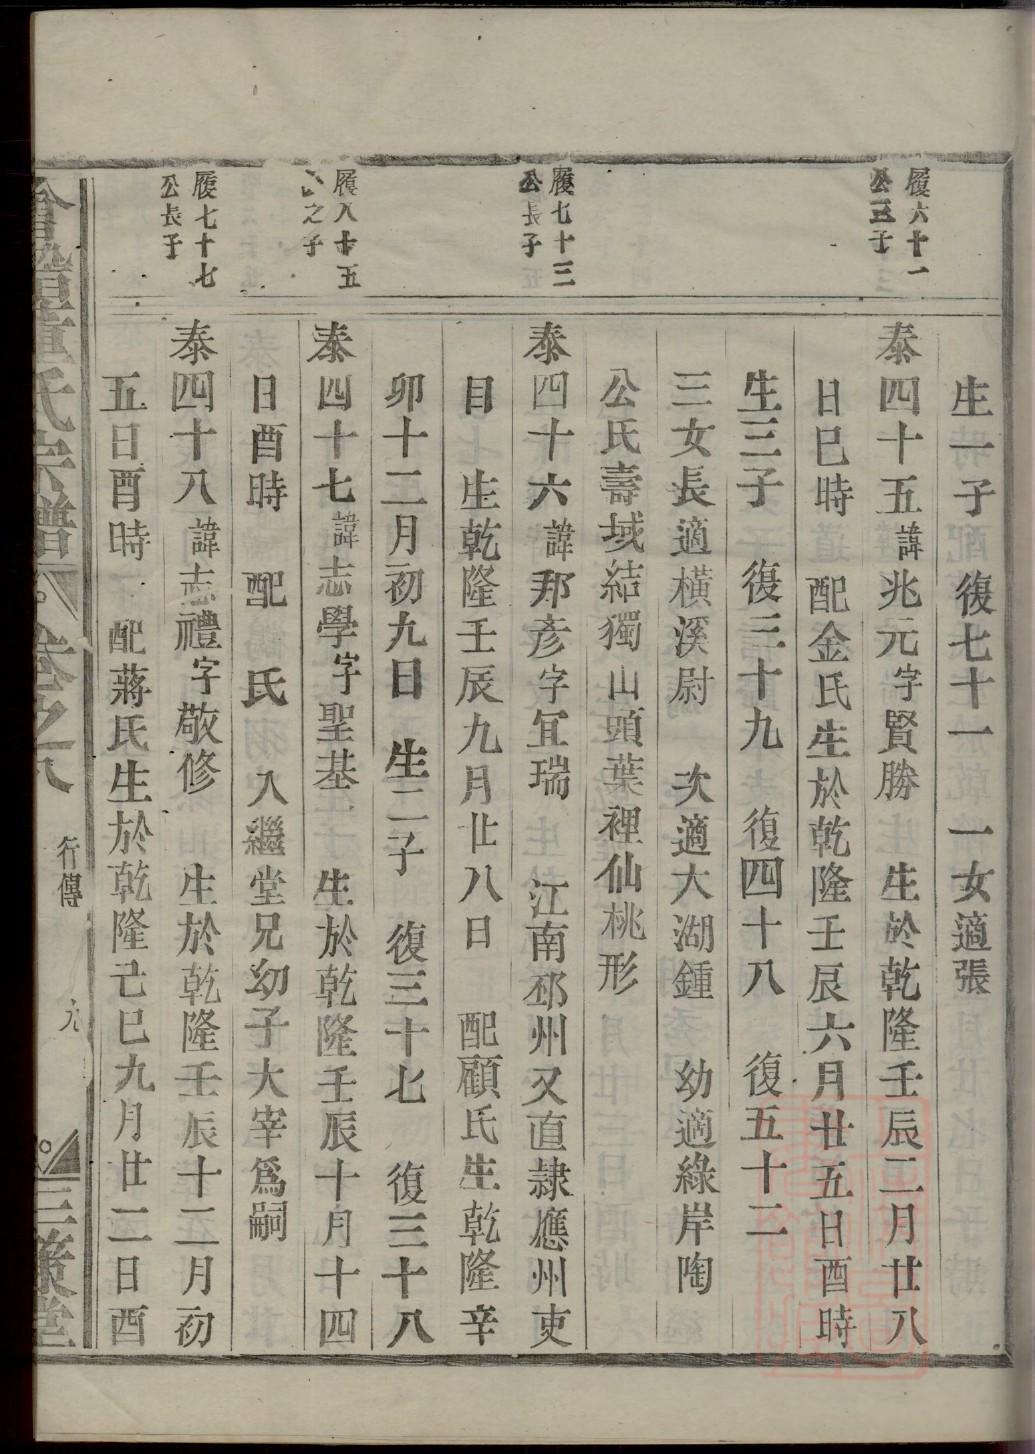 生一子　復七十一　一女適張
履六十一
公三子
泰四十五諱兆元字賢勝　生於乾隆壬辰二月廿八
日巳時　配金氏生於乾隆壬辰六月廿五日酉時
生三子　復三十九　復四十八　復五十二
三女長適橫溪尉　次適大湖鍾　幼適綠岸陶
公氏壽域結獨山頭葉裡仙桃形
履七十三
公長子
泰四十六諱邦彥字宜瑞　江南邳州又直隷應州吏
目　生乾隆壬辰九月廿八日　配顧氏生乾隆辛
卯十二月初九日　生二子　復三十七　復三十八
履八十五
公之子
泰四十七諱志學字聖基　生於乾隆壬辰十月十四
日酉時　配　氏　入繼堂兄幼子大宰爲嗣
履七十七
公長子
泰四十八諱志禮字敬修　生於乾隆壬辰十二月初
五日酉時　配蔣氏生於乾隆己巳九月廿二日酉
會稽童氏宗譜　卷之八　行傳　九　三策堂